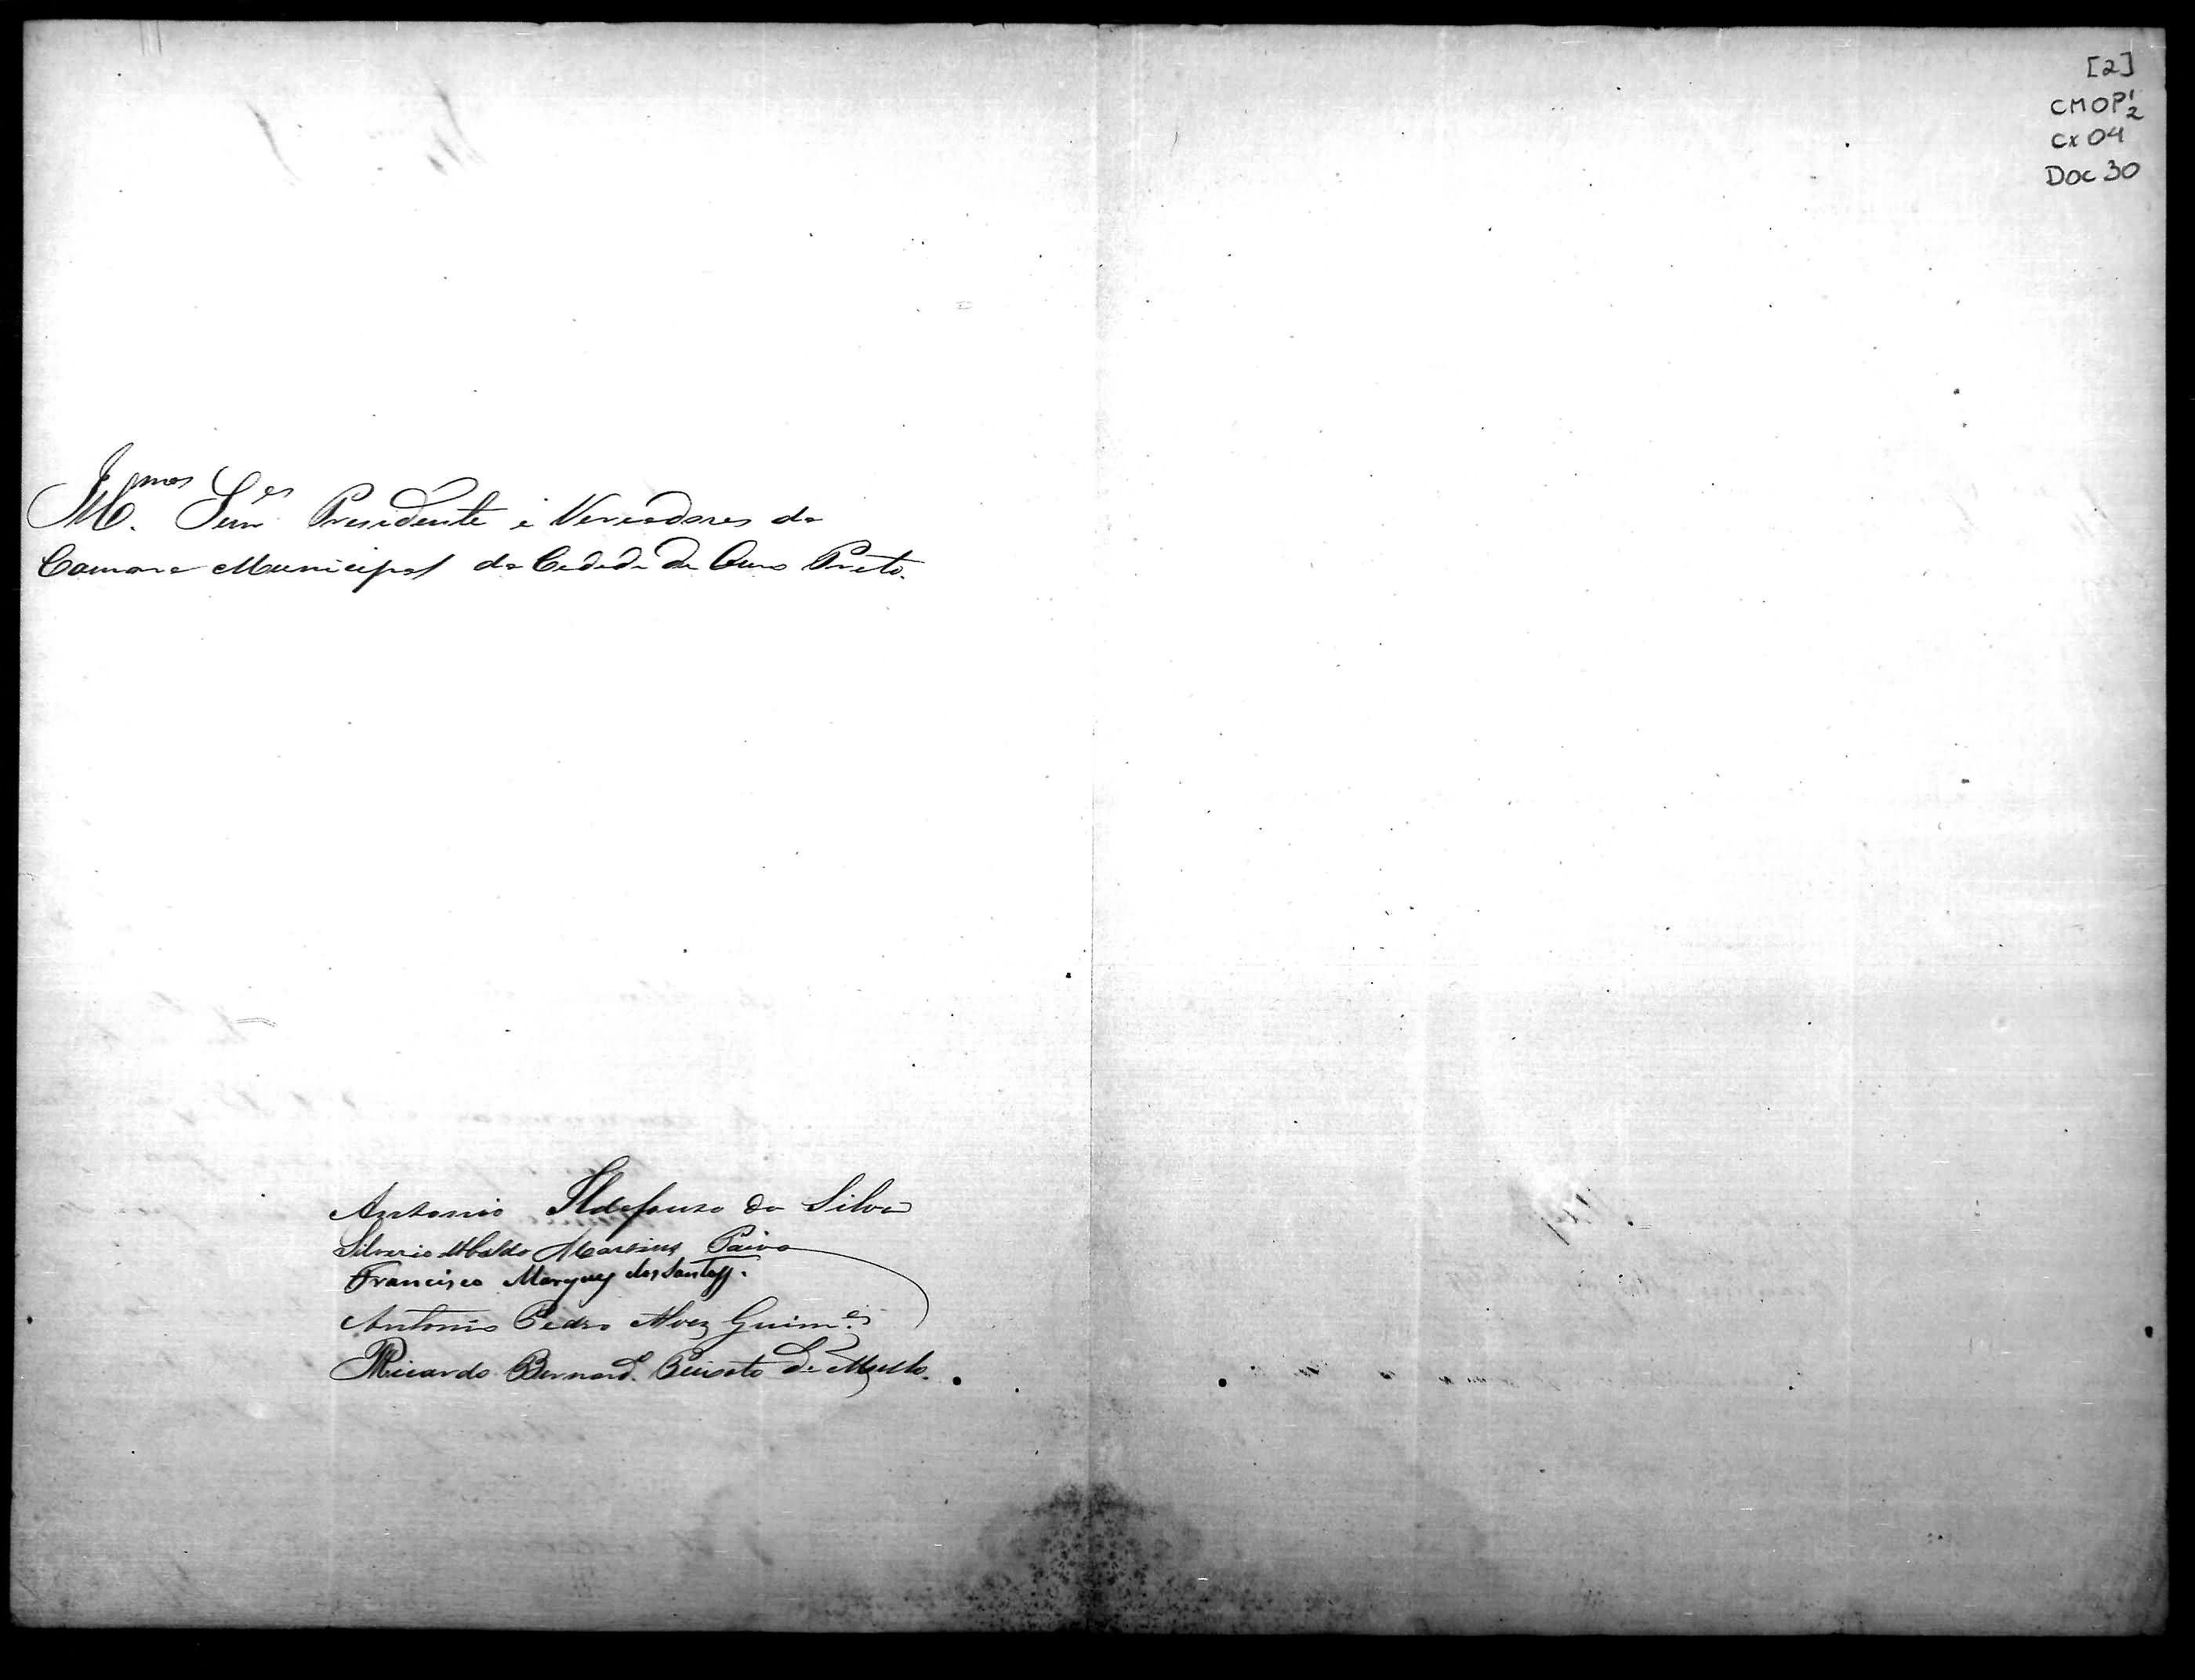 [2]
CMOP 1/2
Cx 04
Doc 30
Ill.mos Senr.es Presidente e Vereadores da
Camara Municipal da Cidade de Ouro Preto.
Antonio Ildefonso da Silva
Silverio Ubaldo Martins Paiva
Francisco Marques dos Santos.
Antonio Pedro Alvez Guim.es
Ricardo Bernard. Peixoto de Mello.